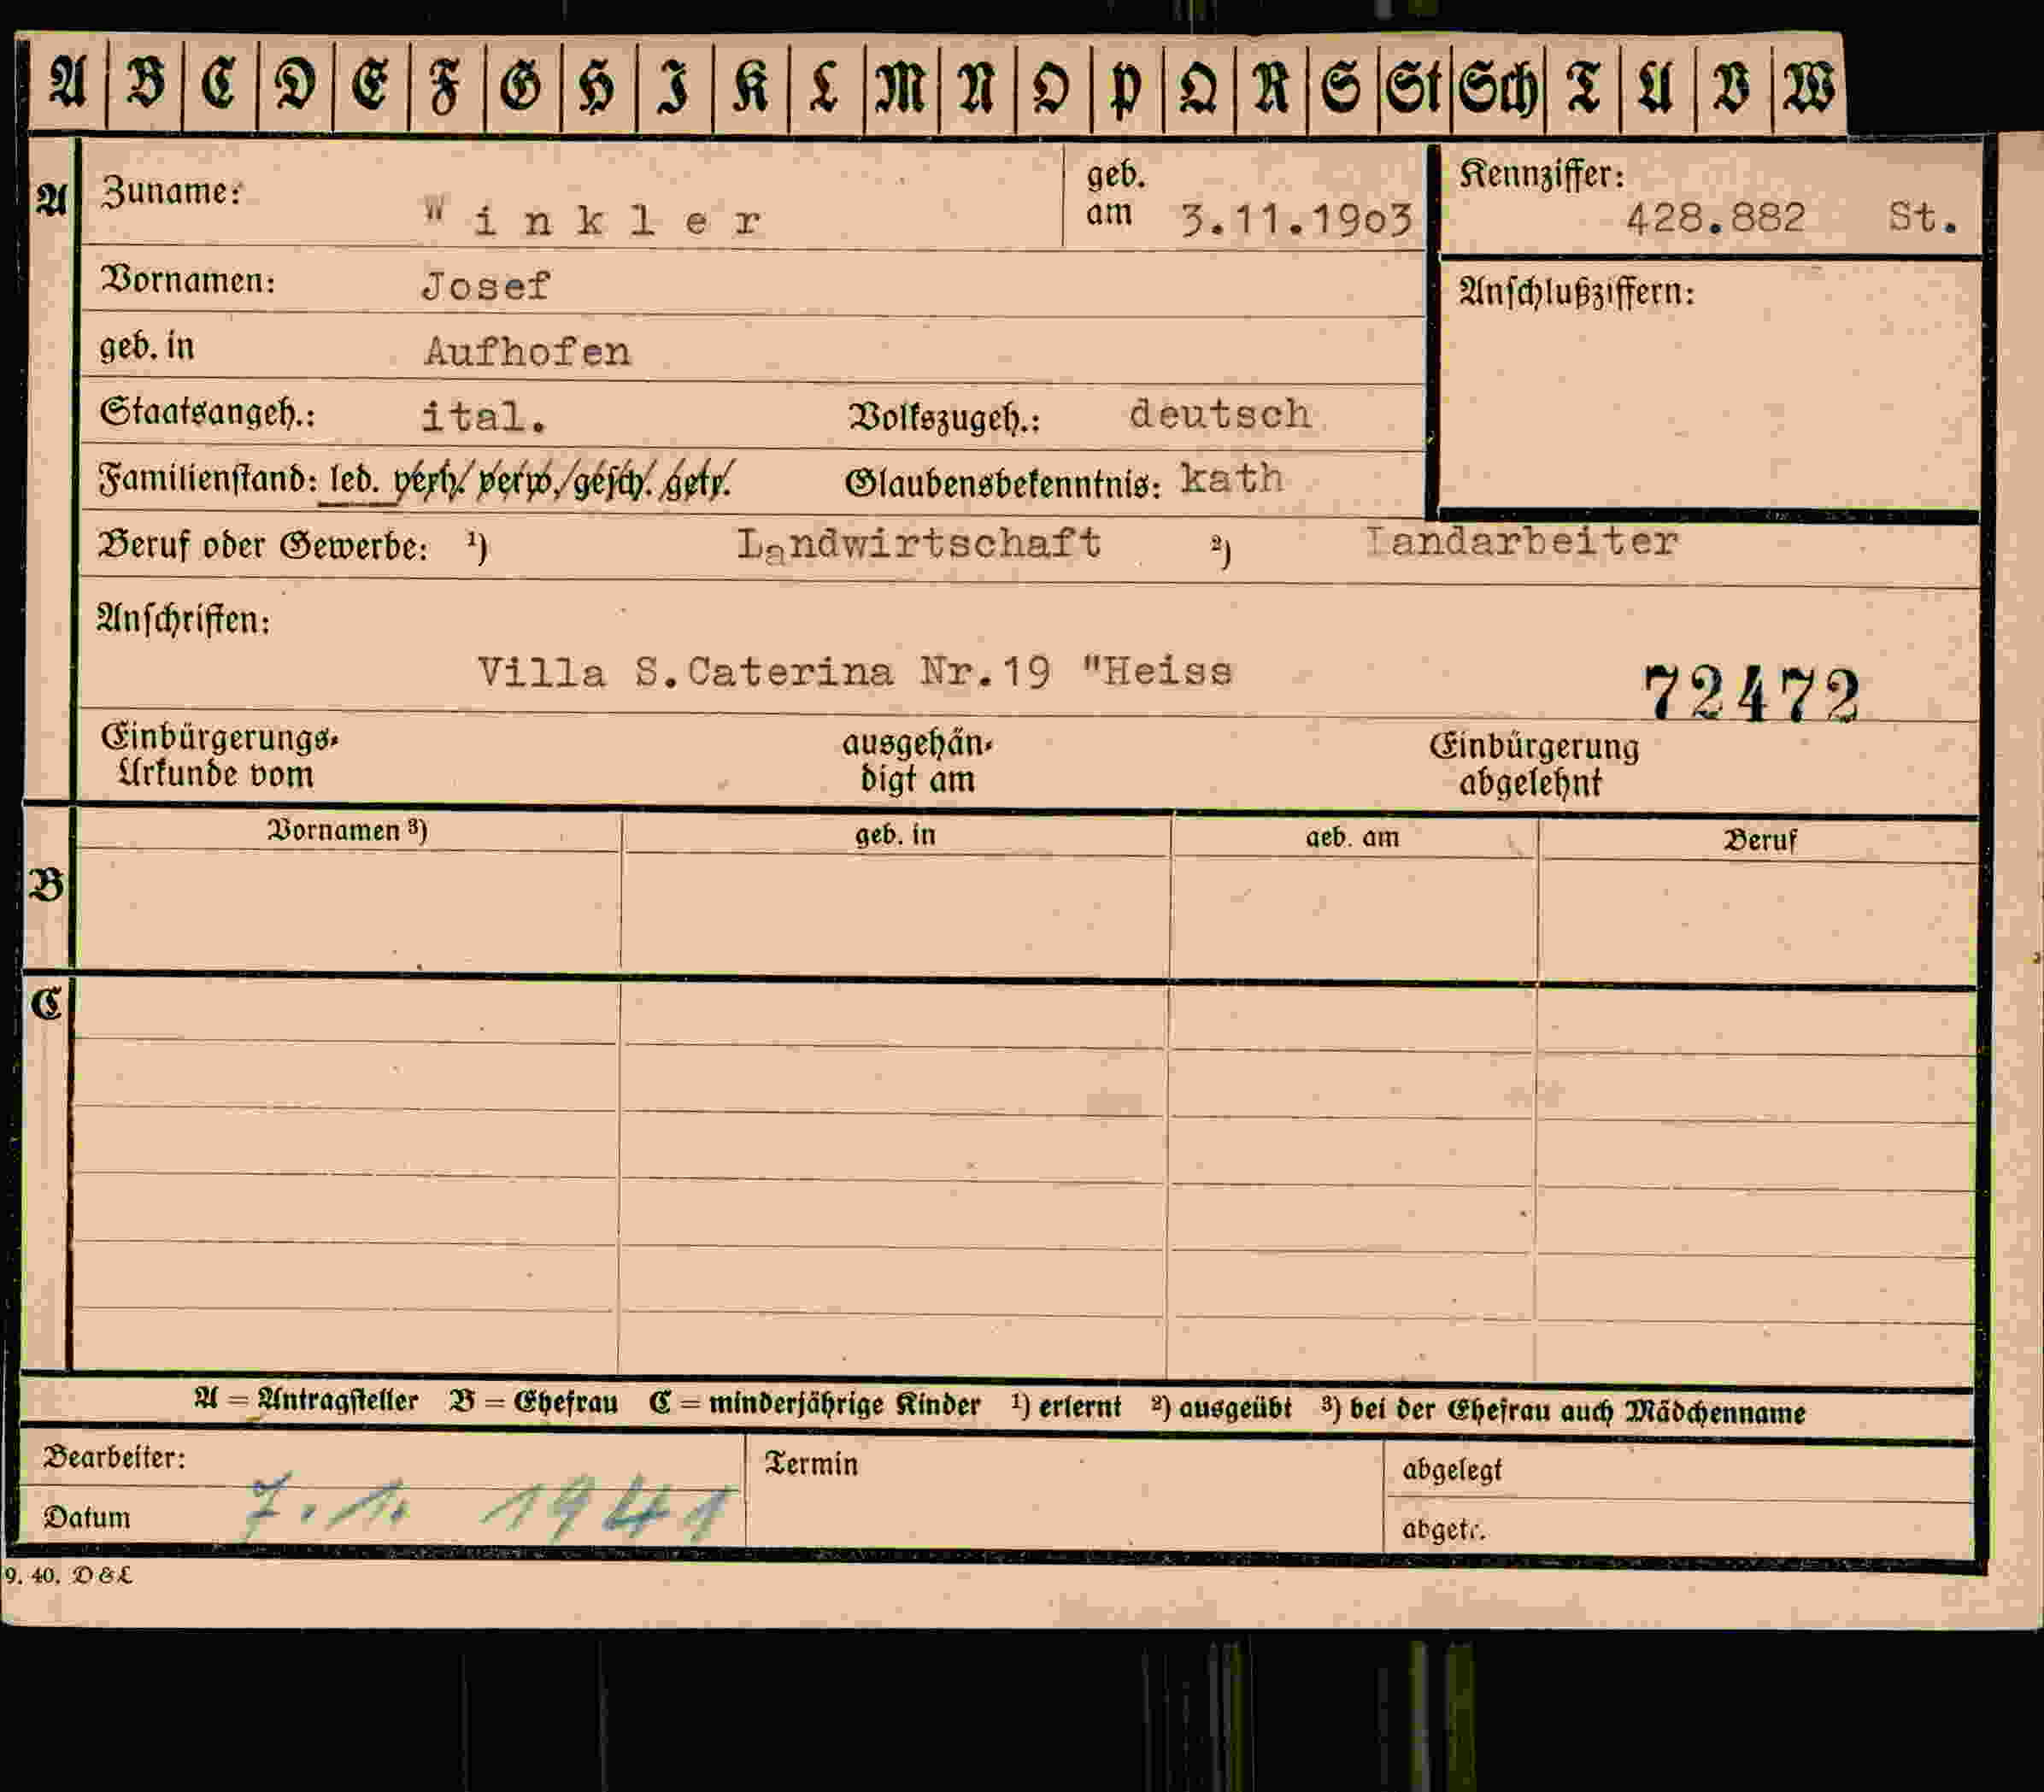 A B C D E F G H I K L M N O P Q R S St Sch T U V W
A Zuname: Winkler geb. am 3.11.1903 Kennziffer: 428.882 St.
Vornamen: Josef Anschlußziffern:
geb. in Aufhofen
Staatsangeh.: ital. Volkszugeh.: deutsch
Familienstand: led. verh./verw./gesch./getr. Glaubensbekenntnis: kath
Beruf oder Gewerbe: ¹) Landwirtschaft ²) Landarbeiter
Anschriften:
Villa S.Caterina Nr.19 "Heiss 72472
Einbürgerungs- ausgehän- Einbürgerung
Urkunde vom digt am abgelehnt
B Vornamen ³) geb. in geb. am Beruf
C
A = Antragsteller B = Ehefrau C = minderjährige Kinder ¹) erlernt ²) ausgeübt ³) bei der Ehefrau auch Mädchenname
Bearbeiter: Termin abgelegt
Datum 7.1. 1941 abgetr.
9. 40. D & L